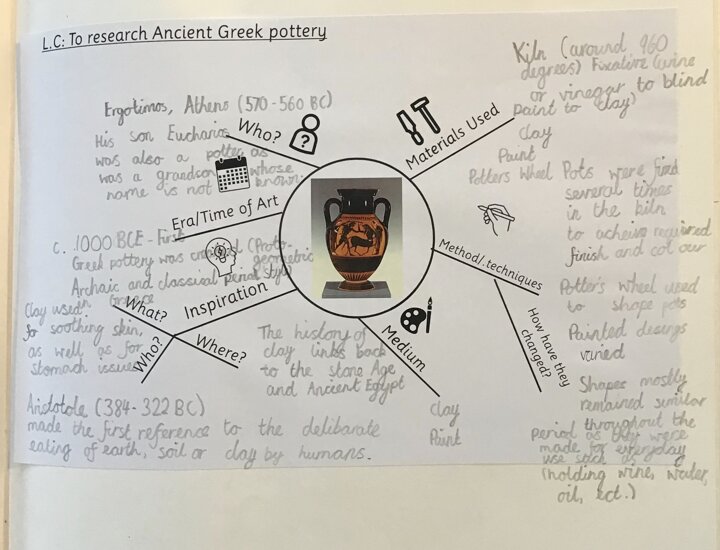 L.C: To research Ancient Greek pottery
Ergotimos, Athens (570-560 BC)
His son Eucharios
was also a potter as
was a grandson whose
name is not known.
Who?
Materials Used
Kiln (around 960
degrees) Fixative (wine
or vinegar to blind
paint to clay)
clay
Paint
Potters Wheel
Era/Time of Art
c. 1000 BCE - First
Greek pottery was created (Proto-
geometric
style)
Archaic and classical period
Greece
Inspiration
What?
Who?
Where?
Clay used
for soothing skin,
as well as for
stomach issues
The history of
clay links back
to the stone Age
and Ancient Egypt
Aristotole (384-322 BC)
made the first reference to the deliberate
eating of earth, soil or clay by humans.
Medium
clay
Paint
Method/.techniques
Pots were fired
several times
in the kiln
to acheive required
finish and colour
Potter's wheel used
to shape pots
Painted desings
varied
How have they
changed?
Shapes mostly
remained similar
throughout the
period as they were
made for everyday
use such as
(holding wine, water,
oil, ect.)